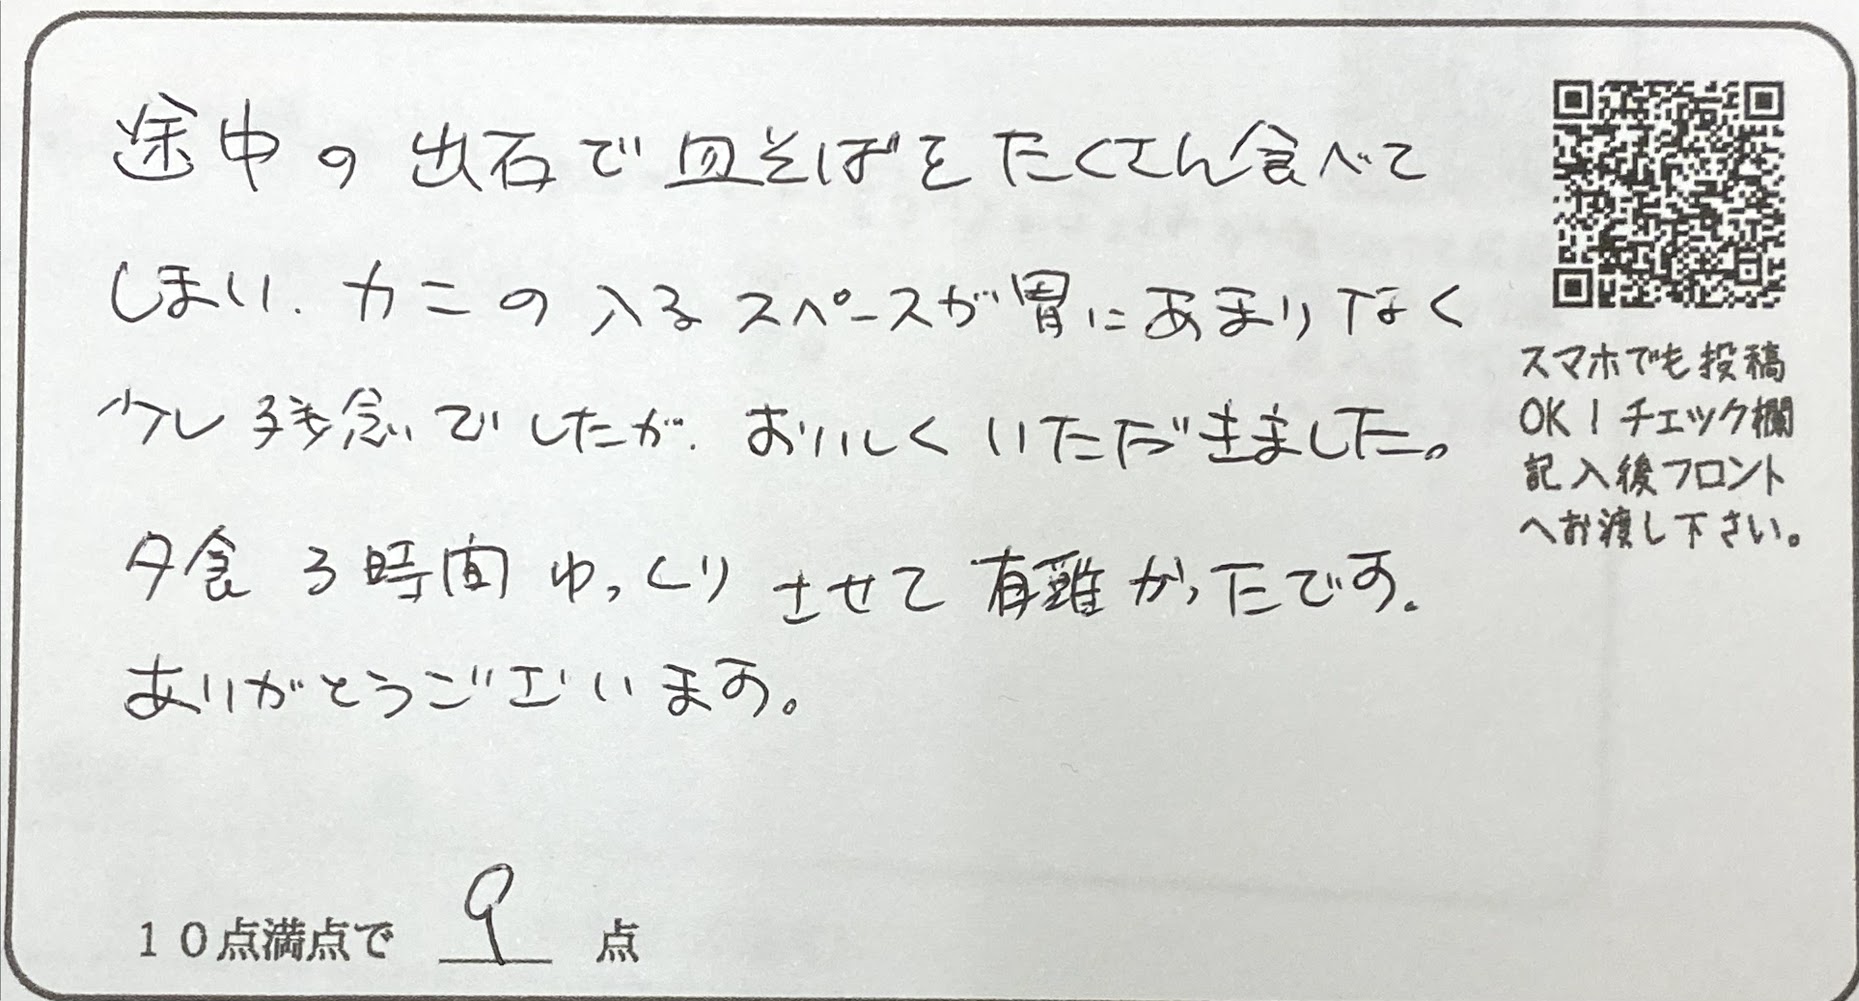 途中の出石で皿そばをたくさん食べて
しまい、カニの入るスペースが胃にあまりなく
少し残念でしたが、おいしくいただきました。
夕食3時間ゆっくりさせて有難かったです。
ありがとうございます。
スマホでも投稿
OK！チェック欄
記入後フロント
へお渡し下さい。
10点満点で 9 点